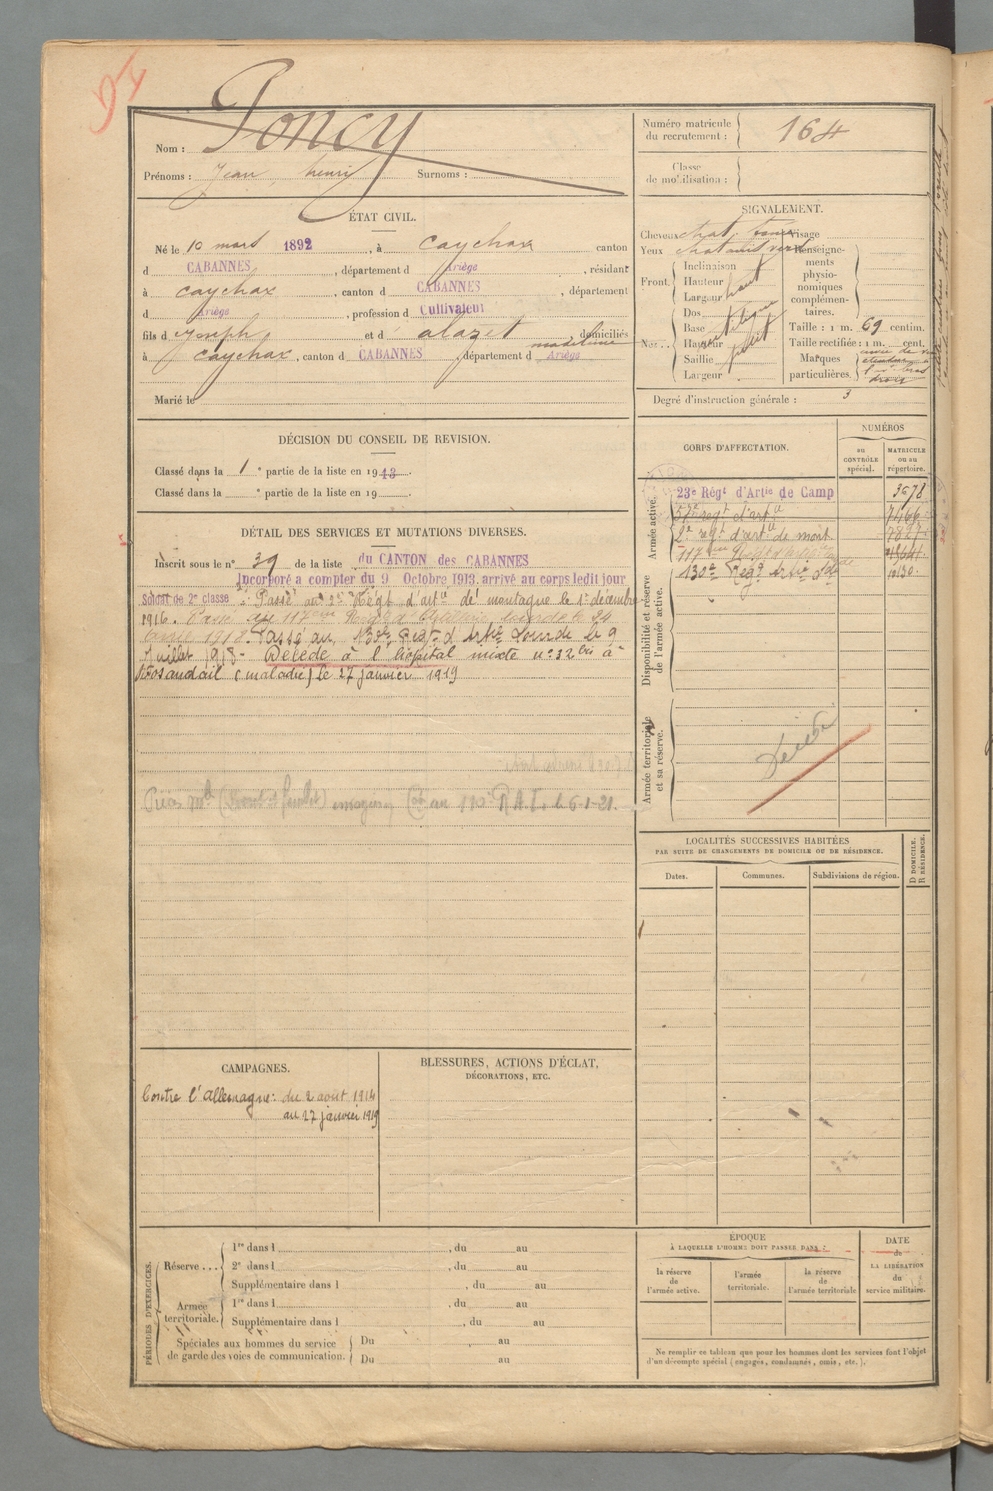 94
Nom : Poncy
Prénoms : Jean, henry Surnoms :
Numéro matricule du recrutement : 164
Classe de mobilisation :
ÉTAT CIVIL.
Né le 10 mars 1892, à Caychax canton
d CABANNES, département d Ariège, résidant
à Caychax, canton d CABANNES, département
d Ariège, profession d Cultivateur
fils d Joseph et d' alazet madeleine domiciliés
à Caychax, canton d CABANNES, département d Ariège
Marié le
SIGNALEMENT.
Cheveux chat. Visage
Yeux
Front. Inclinaison
Hauteur
Largeur haut
Nez.. Dos
Base
Hauteur
Saillie petit
Largeur
Renseignements physionomiques complémentaires.
Taille : 1 m. 69 centim.
Taille rectifiée : 1 m. cent.
Marques particulières.
Degré d'instruction générale : 3
DÉCISION DU CONSEIL DE REVISION.
Classé dans la 1e partie de la liste en 1913.
Classé dans la e partie de la liste en 19
DÉTAIL DES SERVICES ET MUTATIONS DIVERSES.
Inscrit sous le n° 39 de la liste du CANTON des CABANNES
Incorporé a compter du 9 Octobre 1913. arrivé au corps ledit jour
Soldat de 2e classe. Passé au 2e Régt d'artie de montagne le 1er décembre
1916.
1918. Passé au 130e Régt d'Artie Lourde le 9
Juillet 1918 - Décédé à l'hôpital mixte n° 32 bis à
Rosendail (maladie) le 27 janvier 1919
R.A.L. le 6-1-21.
CORPS D'AFFECTATION.
NUMÉROS
au CONTRÔLE spécial.
MATRICULE ou au répertoire.
Armée active.
23e Régt d'Artie de Camp 3678
regt d'artie 7466
2e regt d'artie de mont. 7827
117eme
130e Reg Artie Lde
Disponibilité et réserve de l'armée active.
Armée territoriale et sa réserve.
Décédé
LOCALITÉS SUCCESSIVES HABITÉES
PAR SUITE DE CHANGEMENTS DE DOMICILE OU DE RÉSIDENCE.
Dates. Communes. Subdivisions de région. D DOMICILE. R RÉSIDENCE.
CAMPAGNES.
Contre l'Allemagne : du 2 août 1914
au 27 janvier 1919
BLESSURES, ACTIONS D'ÉCLAT,
DÉCORATIONS, ETC.
PÉRIODES D'EXERCICES.
Réserve... 1re dans l , du au
2e dans l , du au
Supplémentaire dans l , du au
Armée territoriale. 1re dans l , du au
Supplémentaire dans l , du au
Spéciales aux hommes du service de garde des voies de communication. Du au
Du au
ÉPOQUE
À LAQUELLE L'HOMME DOIT PASSER DANS :
la réserve de l'armée active.
l'armée territoriale.
la réserve de l'armée territoriale
DATE de LA LIBÉRATION du service militaire.
Ne remplir ce tableau que pour les hommes dont les services font l'objet
d'un décompte spécial (engagés, condamnés, omis, etc.).